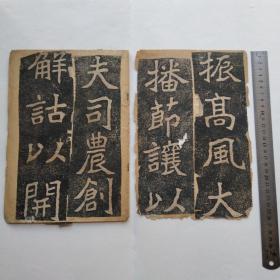 振高風大
播節讓以
夫司農創
解詁以開